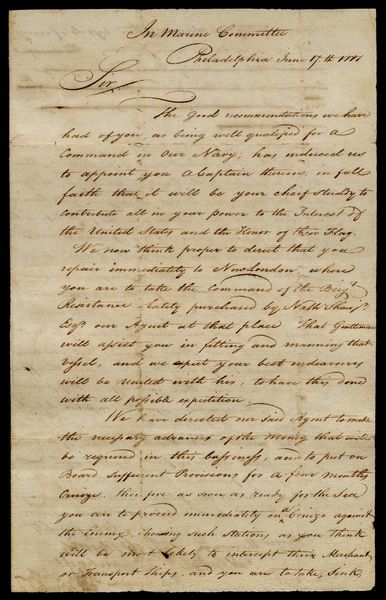 In Marine Committee
Philadelphia June 17.th 1777
Sir
The good recommendations we have
had of you, as being well qualified for a
Command in our Navy, has induced us
to appoint you a Captain therein, in full
faith that it will be your chief study to
contribute all in your power to the Interest of
the United States and the Honor of their Flag.
We now think proper to direct that you
repair immediately to New London, where
you are to take the Command of the Brigt
Resistance lately purchased by Nathl Shaw Junr
Esqr our Agent at that place That Gentleman
will assist you in fitting and manning that
vessel, and we expect your best endeavours
will be united with his, to have this done
with all possible expedition.
We have directed our said Agent to make
the necessary advances of the Money that will
be required in this bussiness, and to put on
Board sufficient Provisions for a four months
Cruize, therefore as soon as ready for the Sea
you are to proceed immediately on a Cruize against
the Enemy, choosing such Stations as you think
will be most likely to intercept their Merchant
or Transport Ships, and you are to take, Sink,